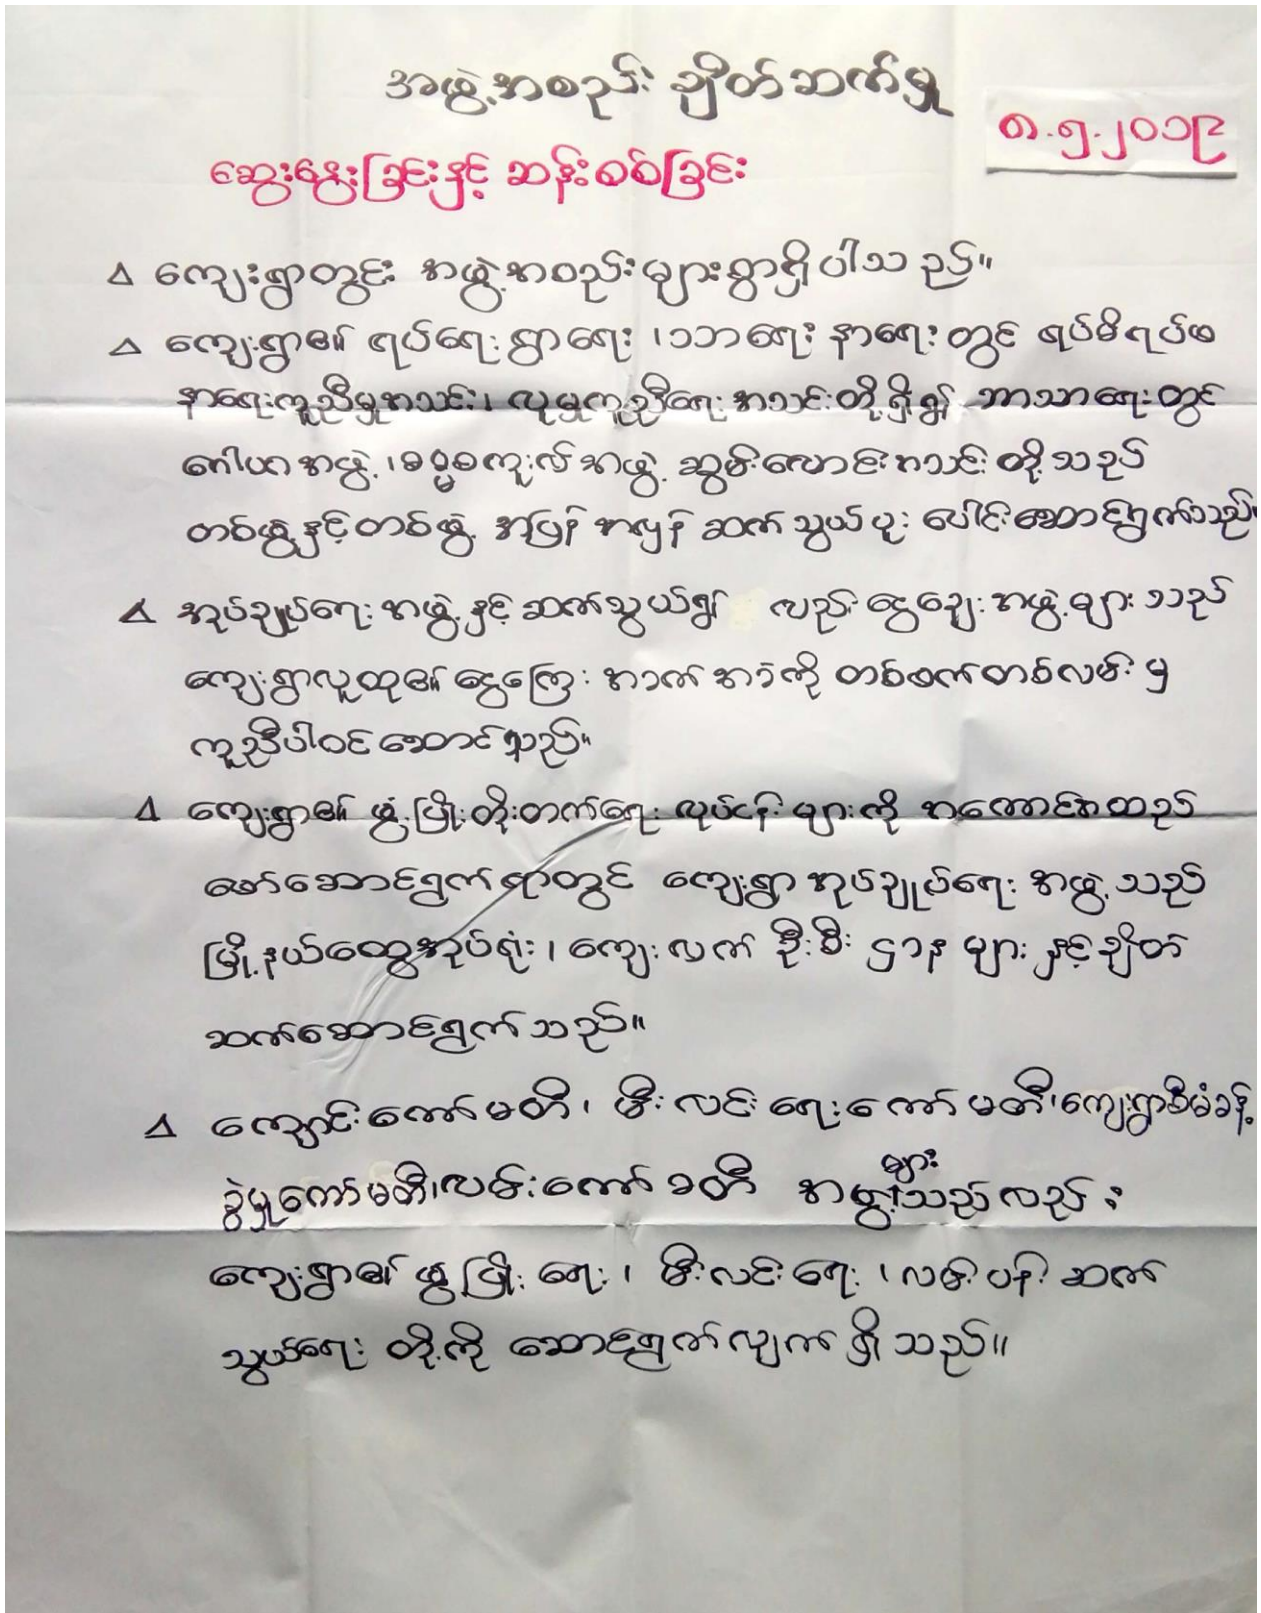 အဖွဲ့အစည်း ချိတ်ဆက်မှု
၈.၅.၂၀၁၉
ဆွေးနွေးခြင်းနှင့် ဆန်းစစ်ခြင်း
∆ ကျေးရွာတွင်း အဖွဲ့အစည်းများစွာရှိပါသည်။
∆ ကျေးရွာ၏ ရပ်ရေးရွာရေး၊ သာရေးနာရေးတွင် ရပ်မိရပ်ဖ
နာရေးကူညီမှုအသင်း၊ လူမှုကူညီရေးအသင်းတို့ရှိ၍ ဘာသာရေးတွင်
ဂေါပကအဖွဲ့၊ ဓမ္မစကူးလ်အဖွဲ့ ဆွမ်းလောင်းအသင်းတို့သည်
တစ်ဖွဲ့နှင့်တစ်ဖွဲ့ အပြန်အလှန် ဆက်သွယ်ပူးပေါင်းဆောင်ရွက်သည်။
∆ အုပ်ချုပ်ရေးအဖွဲ့နှင့် ဆက်သွယ်၍ လည်း ငွေချေးအဖွဲ့များသည်
ကျေးရွာလူထု၏ ငွေကြေး အခက်အခဲကို တစ်ဖက်တစ်လမ်းမှ
ကူညီပါဝင်ဆောင်ရွက်သည်။
∆ ကျေးရွာ၏ ဖွံ့ဖြိုးတိုးတက်ရေး လုပ်ငန်းများကို အကောင်အထည်
ဖော်ဆောင်ရွက်ရာတွင် ကျေးရွာအုပ်ချုပ်ရေးအဖွဲ့သည်
မြို့နယ်ထွေအုပ်ရုံး၊ ကျေးလက် ဦးစီးဌာနများနှင့်ချိတ်
ဆက်ဆောင်ရွက်သည်။
∆ ကျောင်းကော်မတီ၊ မီးလင်းရေးကော်မတီ၊ ကျေးရွာစီမံခန့်
ခွဲမှုကော်မတီ၊ လမ်းကော်မတီ အဖွဲ့များသည်လည်း
ကျေးရွာ၏ ဖွံ့ဖြိုးရေး၊ မီးလင်းရေး၊ လမ်းပန်းဆက်
သွယ်ရေး တို့ကို ဆောင်ရွက်လျက်ရှိသည်။